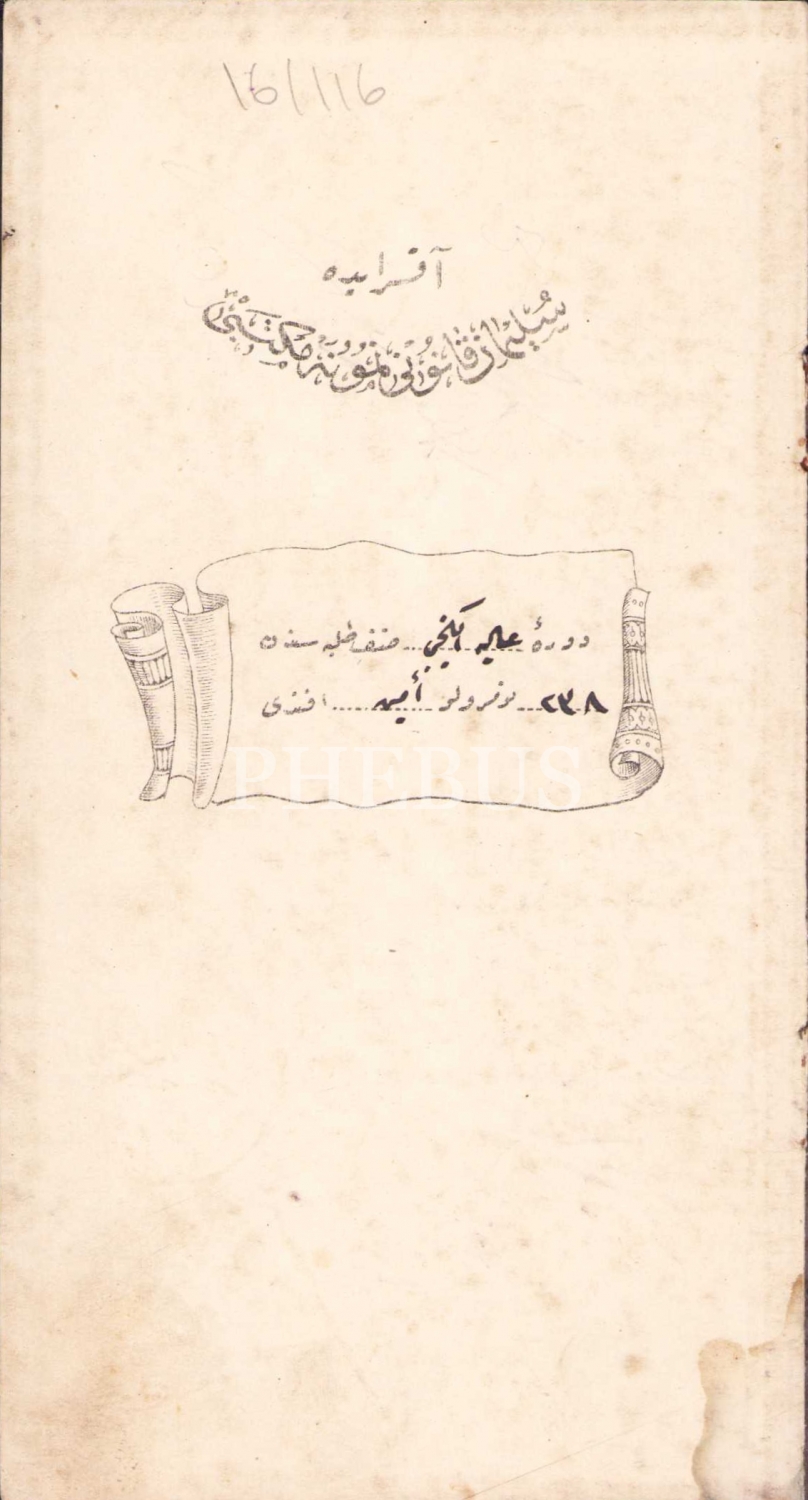 16/116
آقسرایده
سلیمان قانونی نمونه مکتبی
دورهٔ عالیه ایکنجی صنف طلبه سندن
٢٣٨ نومرولو أمین افندی
PHEBUS